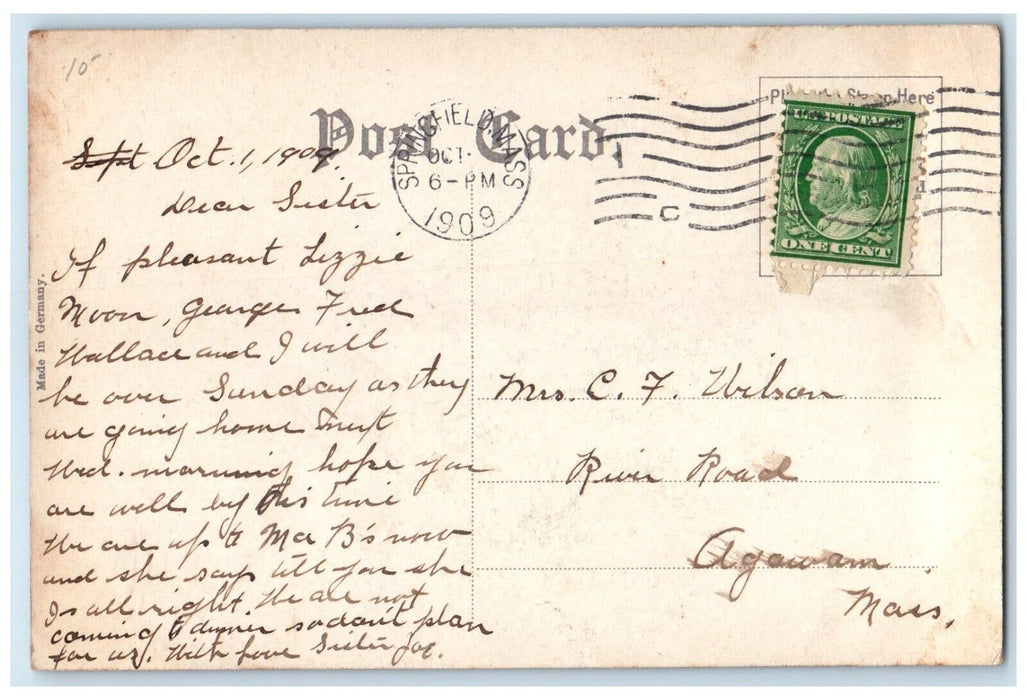 10
Post Card.
SPRINGFIELD, MASS
OCT.
6-PM
1909
C
Place the Stamp Here
U.S. POSTAGE
ONE CENT
Made in Germany.
Sept Oct. 1, 1909.
Dear Sister
If pleasant Lizzie
Moon, George, Fred
Wallace and I will
be over Sunday as they
are going home next
Wed. morning hope you
are well by this time
We are up to Ma B's now
and she says tell you she
Is all right. We are not
coming to dinner so don't plan
for us. With love Sister
Mrs. C. F. Wilson
River Road
Agawam
Mass.